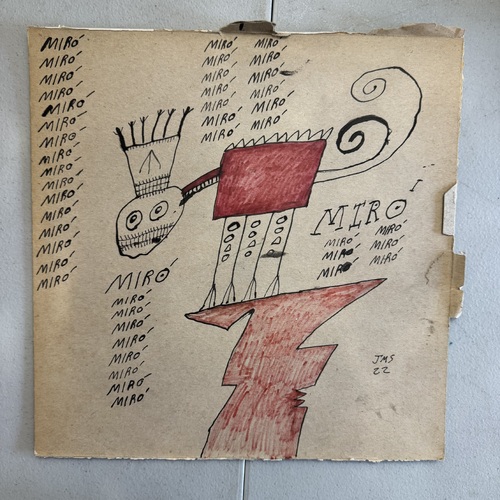 MIRÓ
MIRÓ
MIRÓ
MIRÓ
MIRÓ
MIRÓ
MIRÓ
MIRÓ
MIRÓ
MIRÓ
MIRÓ
MIRÓ
MIRÓ
MIRÓ
MIRÓ
MIRÓ
MIRÓ MIRÓ
MIRÓ MIRÓ
MIRÓ MIRÓ
MIRÓ MIRÓ
MIRÓ MIRÓ
MIRÓ MIRÓ
MIRÓ
MIRÓ
MIRÓ MIRÓ
MIRÓ MIRÓ
MIRÓ MIRÓ
MIRÓ
MIRÓ
MIRÓ
MIRÓ
MIRÓ
MIRÓ
MIRÓ
MIRÓ
MIRÓ
JMS
22